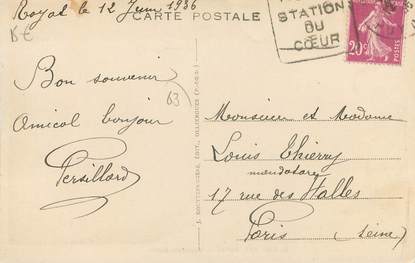 Royat le 12 Juin 1936
CARTE POSTALE
STATION
DU
CŒUR
20c
Bon souvenir
Amical bonjour
Persillard
63
Monsieur et Madame
Louis Thierry
mandataire
17 rue des Halles
Paris (Seine)